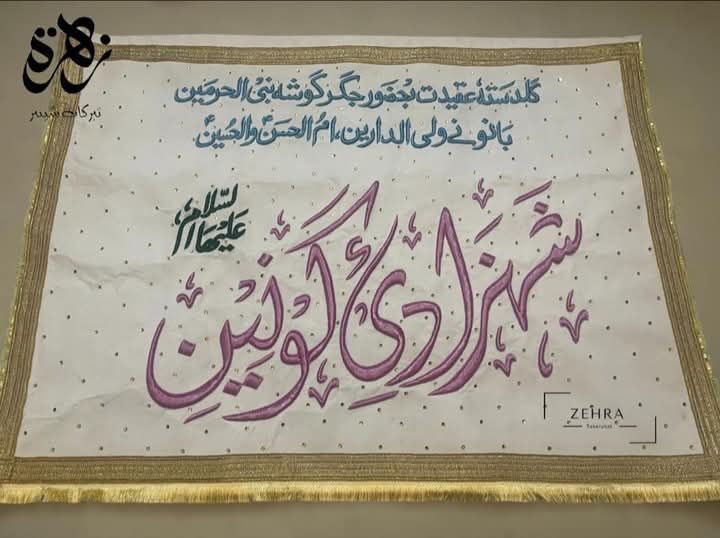 زهرة
تبرکات سینٹر
گلدستۂ عقیدت بحضور جگر گوشہ نبی الحرمین
بانوئے ولی الدارین، ام الحسنؑ والحسینؑ
شہزادیٔ کونین
علیها السلام
ZEHRA
Tabarukat